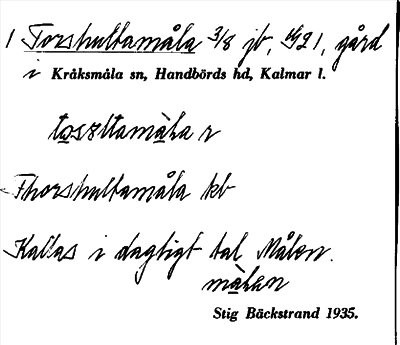 1 Torshultamåla 3/8 jb, gård
i Kråksmåla sn, Handbörds hd, Kalmar l.
Thorshultamåla kb
Kallas i dagligt tal Målen.
Stig Bäckstrand 1935.